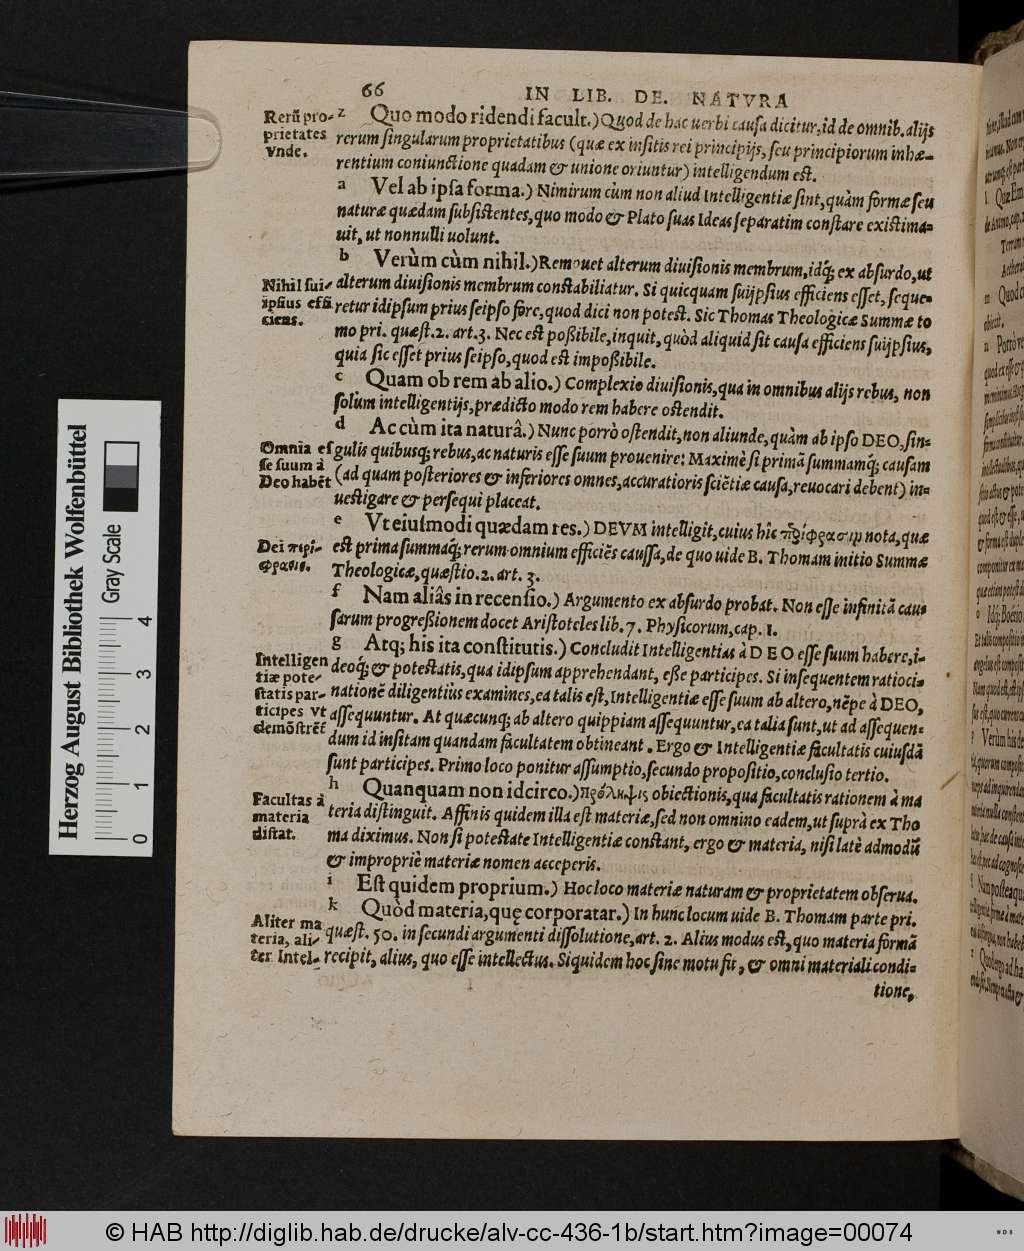 66 IN LIB. DE. NATVRA
Rerū pro-
prietates
vnde.
z Quo modo ridendi facult.) Quod de hac uerbi cauſa dicitur, id de omnib. alijs
rerum ſingularum proprietatibus (quæ ex inſitis rei principijs, ſeu principiorum inhæ-
rentium coniunctione quadam & unione oriuntur) intelligendum eſt.
a Vel ab ipſa forma.) Nimirum cùm non aliud Intelligentiæ ſint, quàm formæ ſeu
naturæ quædam ſubſiſtentes, quo modo & Plato ſuas Ideas ſeparatim conſtare exiſtima-
uit, ut nonnulli uolunt.
b Verùm cùm nihil.) Remouet alterum diuiſionis membrum, idq́; ex abſurdo, ut
Nihil ſui-
ipſius effi
ciens.
alterum diuiſionis membrum conſtabiliatur. Si quicquam ſuijpſius efficiens eſſet, ſeque-
retur idipſum prius ſeipſo fore, quod dici non poteſt. Sic Thomas Theologicæ Summæ to
mo pri. quæſt. 2. art. 3. Nec eſt poßibile, inquit, quòd aliquid ſit cauſa efficiens ſuijpſius,
quia ſic eſſet prius ſeipſo, quod eſt impoßibile.
c Quam ob rem ab alio.) Complexio diuiſionis, qua in omnibus alijs rebus, non
ſolùm intelligentijs, prædicto modo rem habere oſtendit.
d Ac cùm ita naturâ.) Nunc porrò oſtendit, non aliunde, quàm ab ipſo DEO, ſin-
Omnia eſ
ſe ſuum à
Deo habēt
gulis quibusq; rebus, ac naturis eſſe ſuum prouenire: Maximè ſi primā ſummamq́; cauſam
(ad quam poſteriores & inferiores omnes, accuratioris ſciētiæ cauſa, reuocari debent) in-
ueſtigare & perſequi placeat.
e Vt eiuſmodi quædam res.) DEVM intelligit, cuius hîc περίφρασιμ nota, quæ
Dei περί-
φρασις.
eſt prima ſummaq́; rerum omnium efficiēs cauſſa, de quo uide B. Thomam initio Summæ
Theologicæ, quæſtio. 2. art. 3.
f Nam aliâs in recenſio.) Argumento ex abſurdo probat. Non eſſe infinitā cauſ
ſarum progreßionem docet Ariſtoteles lib. 7. Phyſicorum, cap. 1.
g Atq; his ita conſtitutis.) Concludit Intelligentias à DEO eſſe ſuum habere, i-
Intelligen
tiæ pote-
ſtatis par-
ticipes vt
demōſtrēt
deoq́; & poteſtatis, qua idipſum apprehendant, eſſe participes. Si inſequentem ratioci-
nationē diligentiùs examines, ea talis eſt, Intelligentiæ eſſe ſuum ab altero, nēpe à DEO,
aſſequuntur. At quæcunq; ab altero quippiam aſſequuntur, ea talia ſunt, ut ad aſſequen-
dum id inſitam quandam facultatem obtineant. Ergo & Intelligentiæ facultatis cuiuſdā
ſunt participes. Primo loco ponitur aſſumptio, ſecundo propoſitio, concluſio tertio.
h Quanquam non idcirco.) πρόληψις obiectionis, qua facultatis rationem à ma
Facultas à
materia
diſtat.
teria diſtinguit. Affinis quidem illa eſt materiæ, ſed non omnino eadem, ut ſuprà ex Tho
ma diximus. Non ſi poteſtate Intelligentiæ conſtant, ergo & materia, niſi latè admodū
& impropriè materiæ nomen acceperis.
i Eſt quidem proprium.) Hoc loco materiæ naturam & proprietatem obſerua.
k Quòd materia, quę corporatar.) In hunc locum uide B. Thomam parte pri.
Aliter ma
teria, ali-
ter Intel-
quæſt. 50. in ſecundi argumenti diſſolutione, art. 2. Alius modus eſt, quo materia formā
recipit, alius, quo eſſe intellectus. Siquidem hoc ſine motu fit, & omni materiali condi-
tione,
Herzog August Bibliothek Wolfenbüttel
Gray Scale
0 1 2 3 4
© HAB http://diglib.hab.de/drucke/alv-cc-436-1b/start.htm?image=00074